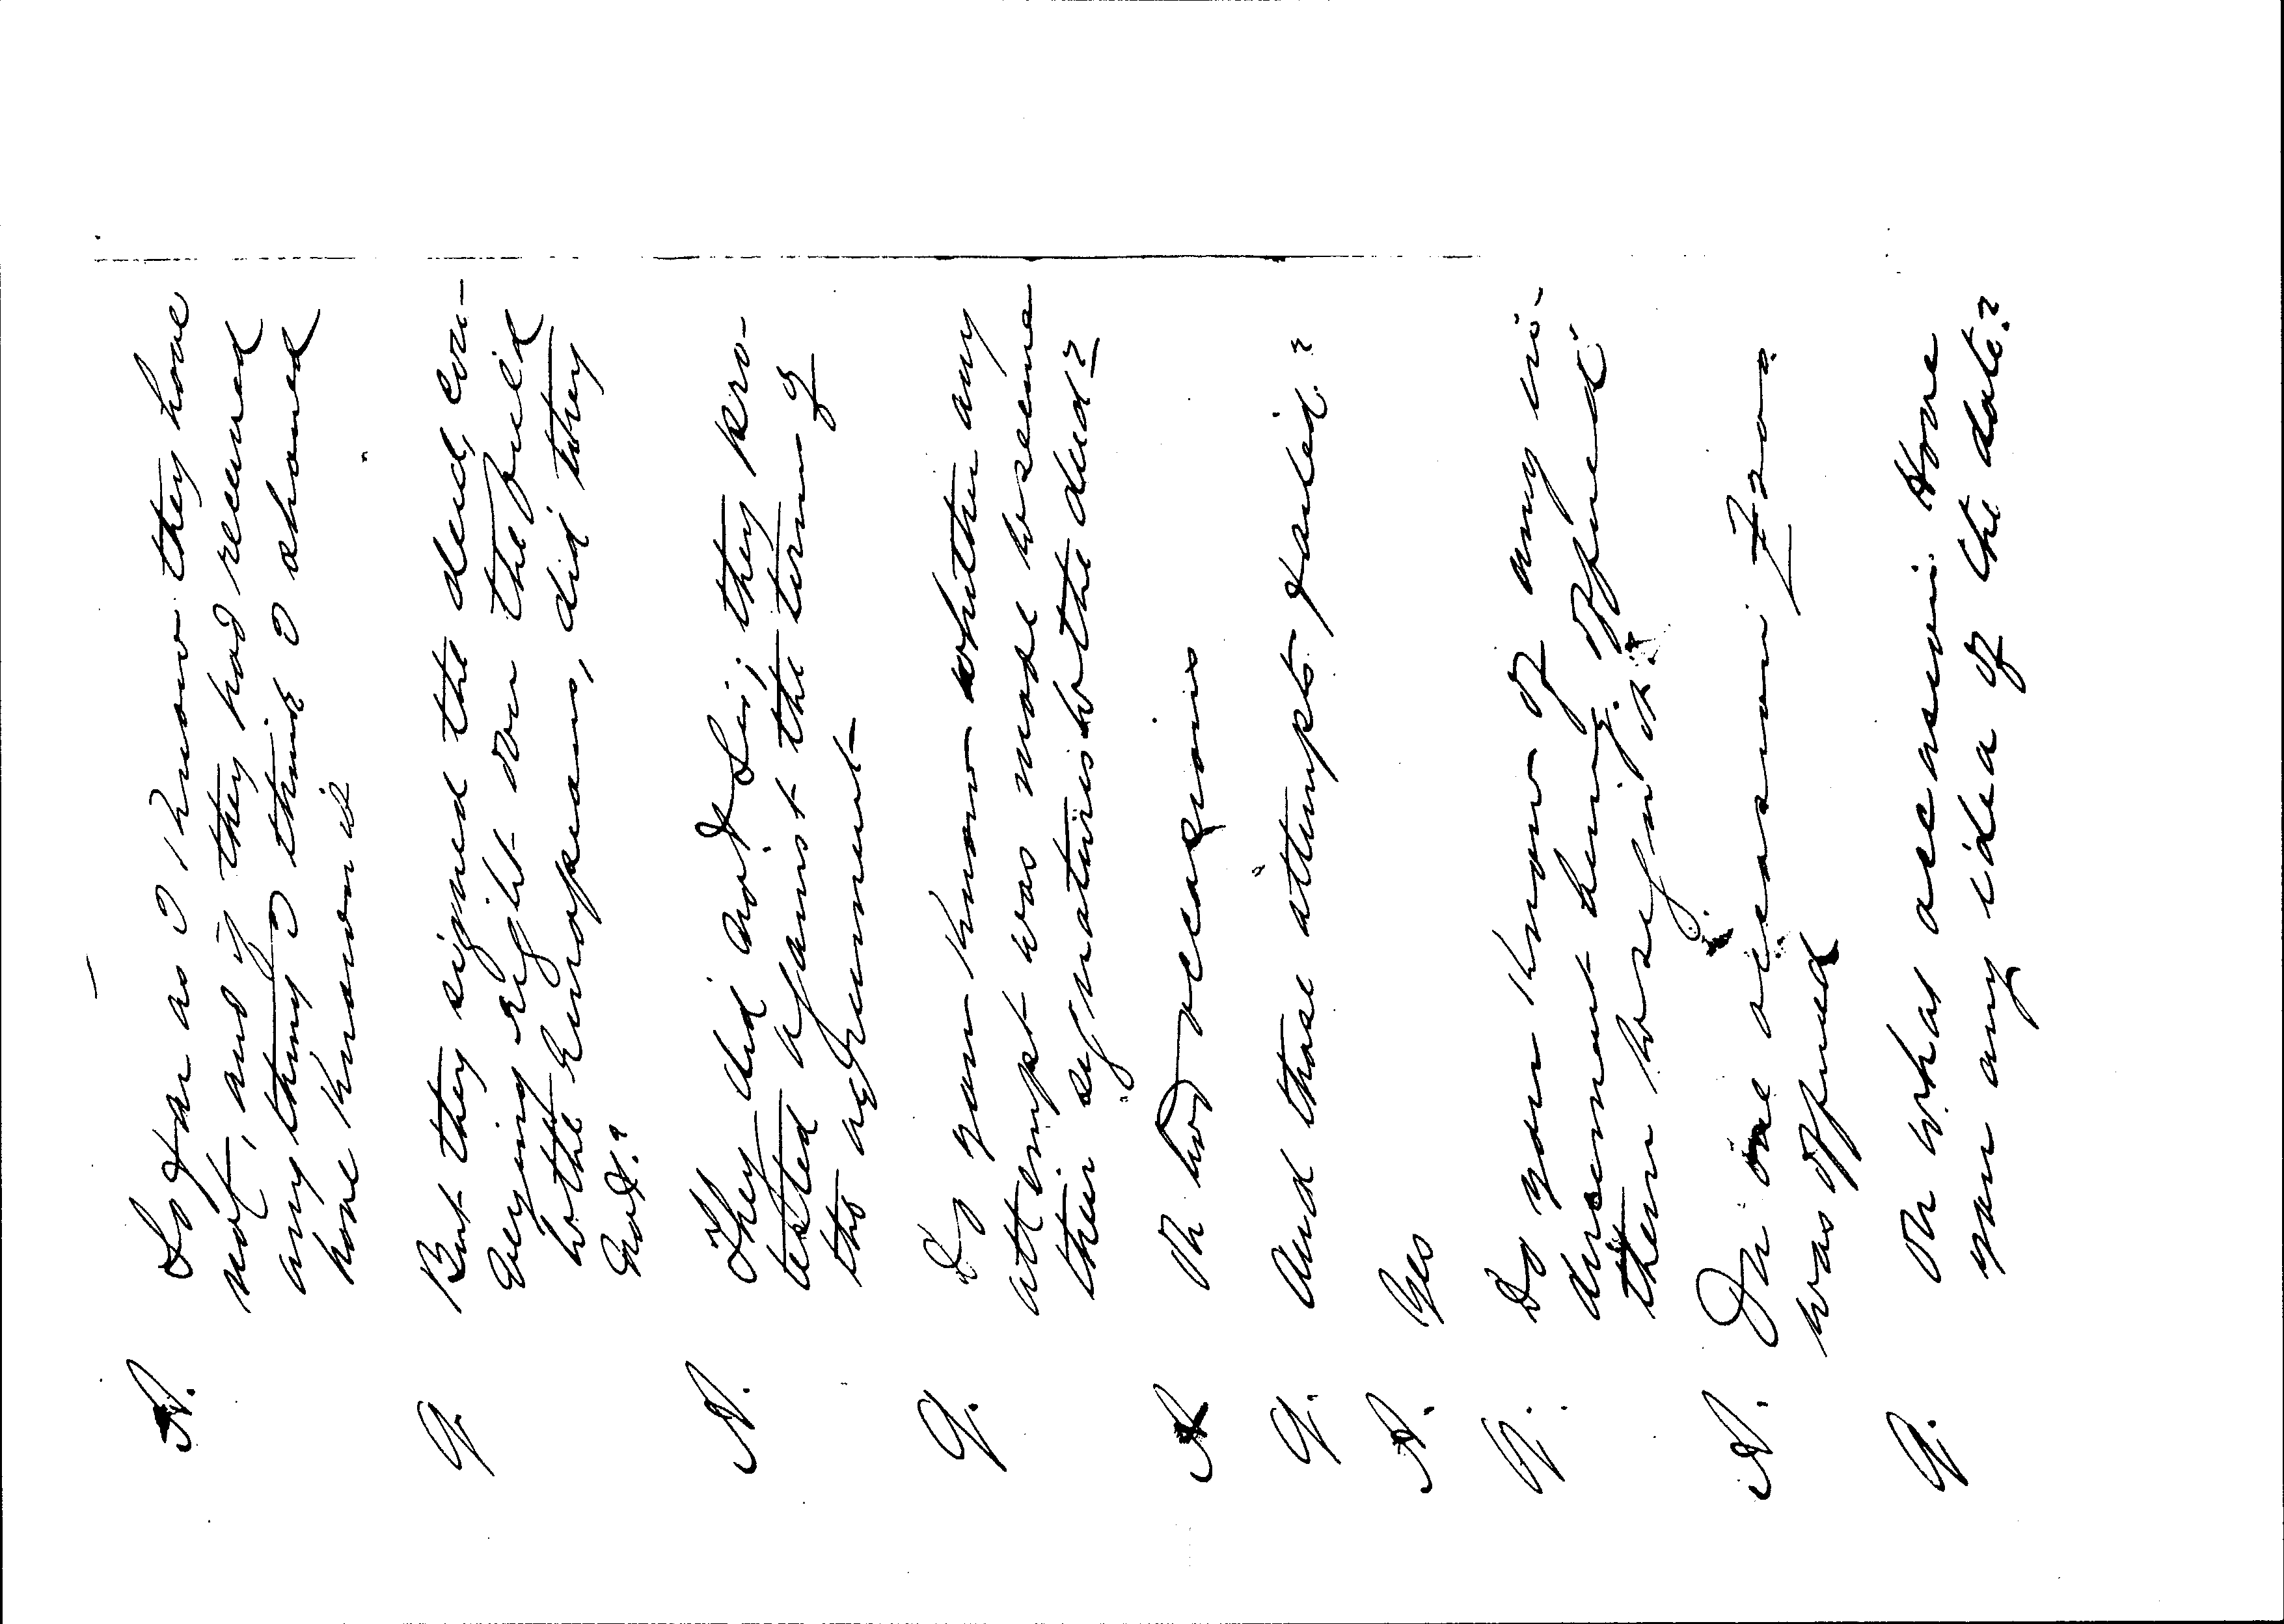 A. So far as I know they have
not, and if they had received
any thing I think I should
have known it
Q. But they signed the deed, con-
veying right over the field
to the Europeans, did they
not?
A. They did not do so; they pro-
tested against the terms of
the agreement
Q. Do you know whether any
attempt was made to secure
their signatures to the deed?
A On two occasions
Q. And those attempts failed?
A. Yes
Q. Do you know of any in-
ducement being offered
them to sign it?
A. On one occasion £200.
was offered
Q. On what occasion. Have
you any idea of the date?